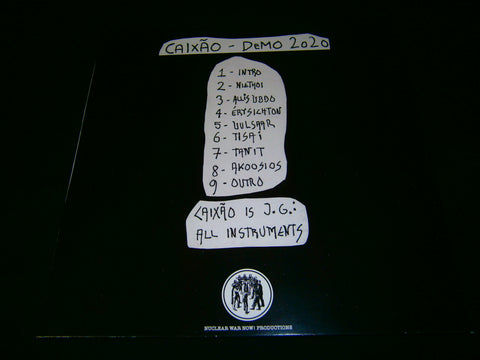 CAIXÃO - DEMO 2020
1 - INTRO
2 - NIETHOI
3 - ALLIS UBBO
4 - ÉRYSICHTON
5 - UULSAAR
6 - TISAI
7 - TANIT
8 - AKOOSIOS
9 - OUTRO
CAIXÃO IS J.G.:
ALL INSTRUMENTS
NUCLEAR WAR NOW! PRODUCTIONS